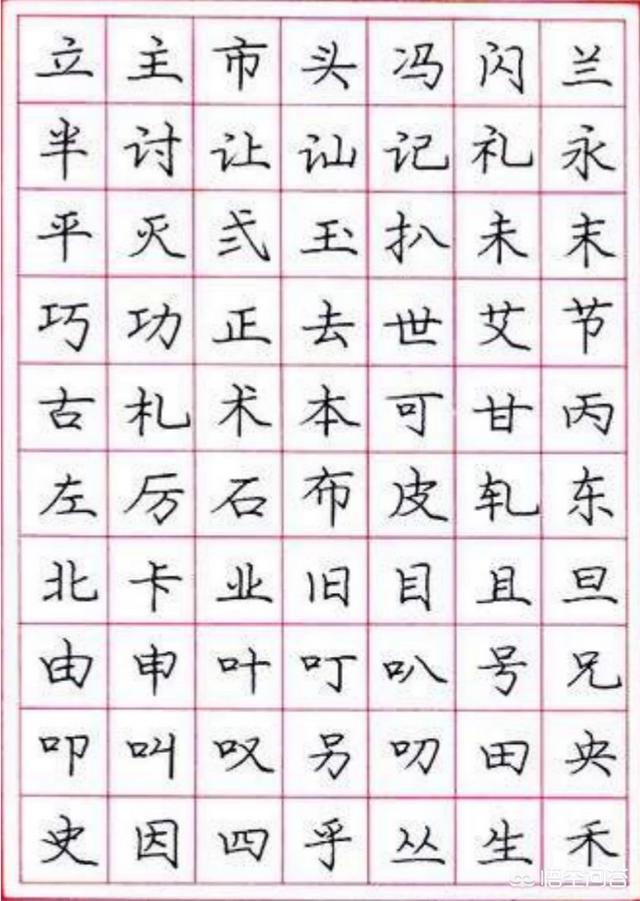 立主市头冯闪兰
半讨让讪记礼永
平灭弍玉扒未末
巧功正去世艾节
古札术本可甘丙
左厉石布皮轧东
北卡业旧目且旦
由申叶叮叭号兄
叩叫叹另叨田央
史因四乎丛生禾
悟空问答